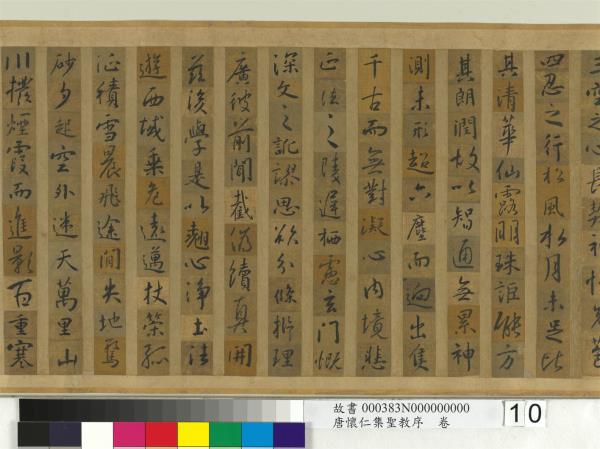 三空之心長契神情先苞
四忍之行松風水月未足比
其清華仙露明珠詎能方
其朗潤故以智通無累神
測未形超六塵而迥出隻
千古而無對凝心內境悲
正法之陵遲栖慮玄門慨
深文之訛謬思欲分條析理
廣彼前聞截偽續真開
茲後學是以翹心淨土法
遊西域乘危遠邁杖策孤
征積雪晨飛途間失地驚
砂夕起空外迷天萬里山
川撥煙霞而進影百重寒
故書 000383N000000000
唐懷仁集聖教序 卷
10